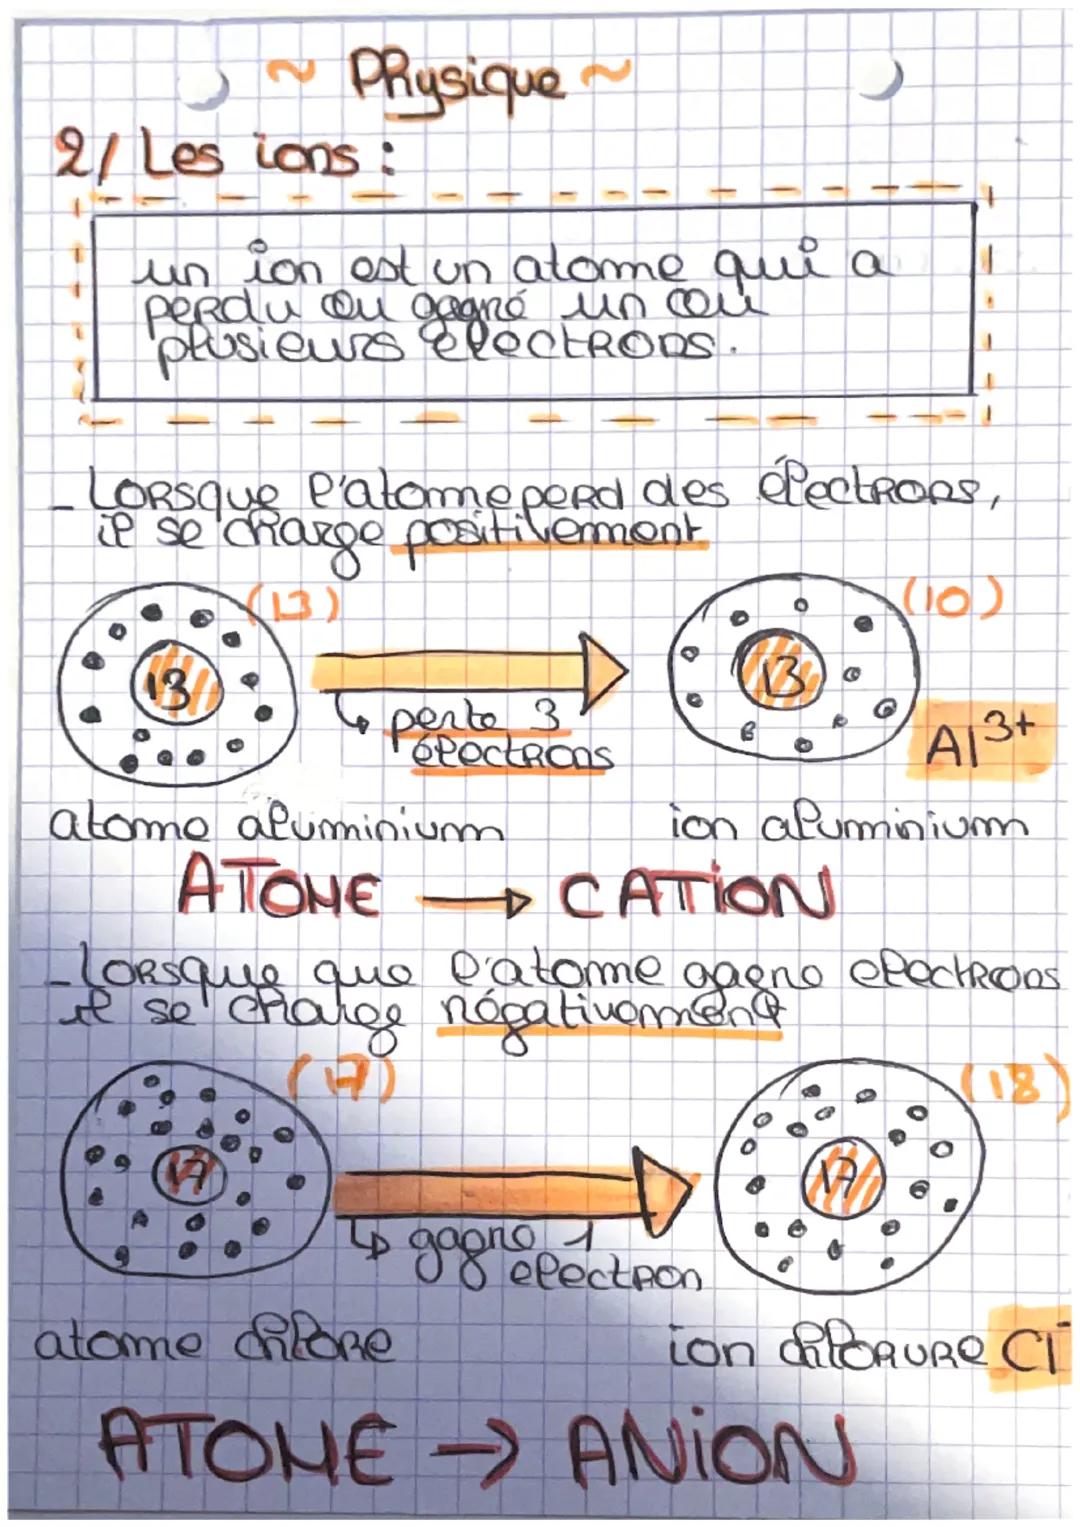 ~ Physique ~
2/ Les ions :
un ion est un atome qui a
perdu ou gagné un ou
plusieurs électrons.
- Lorsque l'atome perd des électrons,
il se charge positivement
(13)
(10)
13
13
↳ perte 3
électrons
Al3+
atome aluminium
ion aluminium
ATOME → CATION
- Lorsque que l'atome gagne electrons
il se charge négativement
(17)
(18)
17
17
↳ gagne 1
electron
atome chlore
ion chlorure Cl-
ATOME → ANION